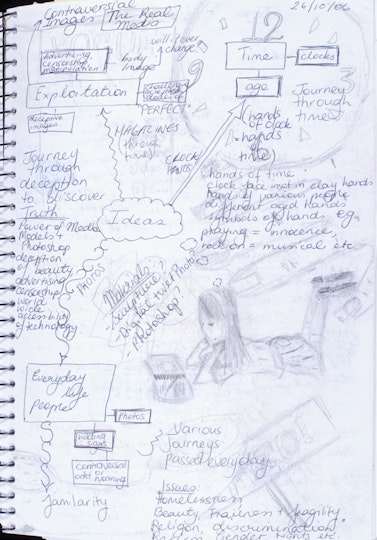 Contraversial
Images The Real
Media
26/10/06
12
3
9
Advertising
censorship
manipulation
body
image
will ever
change
Exploitation
PERFECT
Deceptive
images
Time
clocks
age
Journey
through
time
(hands
of clock
- hands
of
time)
MAGAZINES
(through
time)
CLOCK
HANDS
Journey
through
deception
to discover
Truth
Power of Media
Models +
Photoshop
deception
of beauty
advertising
censorship
world
wide
accessibility
of technology
Ideas
hands of time :
clock face inst in day hands
hands of various people
different aged hands
symbols of hands eg.
playing = innocence,
rock on = musical etc.
PHOTOS
Materials?
- Sculpture?
- Digital active Photos?
- Photoshop?
Everyday
life
People
Photos
holding
signs
contraversal
odd or meaning
familarity
Various
Journeys
passed everyday
Issues:
Homelessness
Beauty, Frailness + fragility
Religion, discrimination,
Racism, Gender, Rights etc.